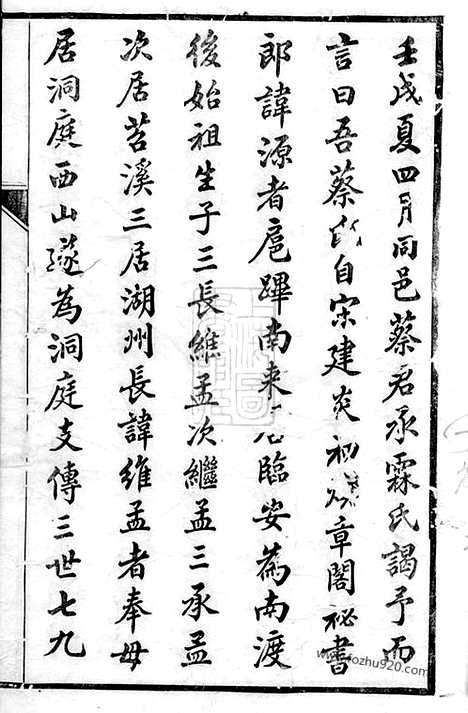 壬戌夏四月同邑蔡君承霖氏謁予而
言曰吾蔡氏自宋建炎初煥章閣祕書
郎諱源者扈蹕南来居臨安為南渡
後始祖生子三長維孟次繼孟三承孟
次居苕溪三居湖州長諱維孟者奉母
居洞庭西山遂為洞庭支傳三世七九
www.fozhu920.com